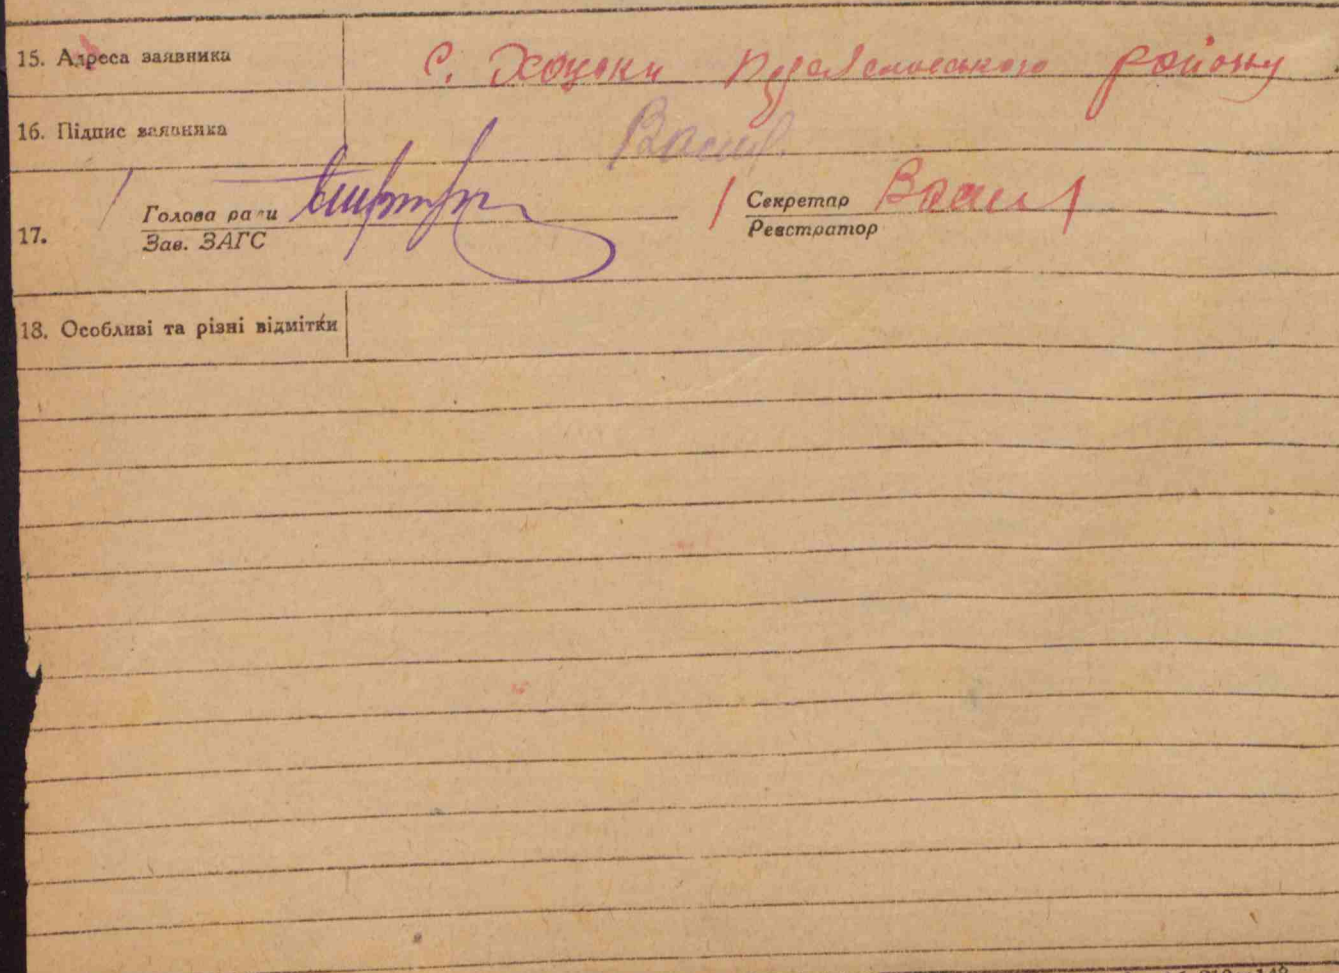 15. Адреса заявника с. Хоцьки Переяславського району
16. Підпис заявника
17. Голова ради Секретар
Зав. ЗАГС Реєстратор
18. Особливі та різні відмітки